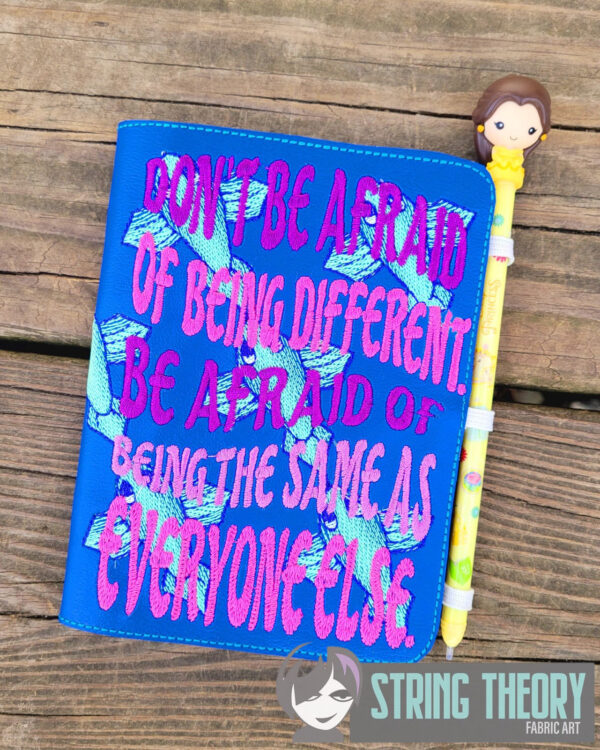 DON'T BE AFRAID
OF BEING DIFFERENT.
BE AFRAID OF
BEING THE SAME AS
EVERYONE ELSE.
PRINCESS
STRING THEORY
FABRIC ART